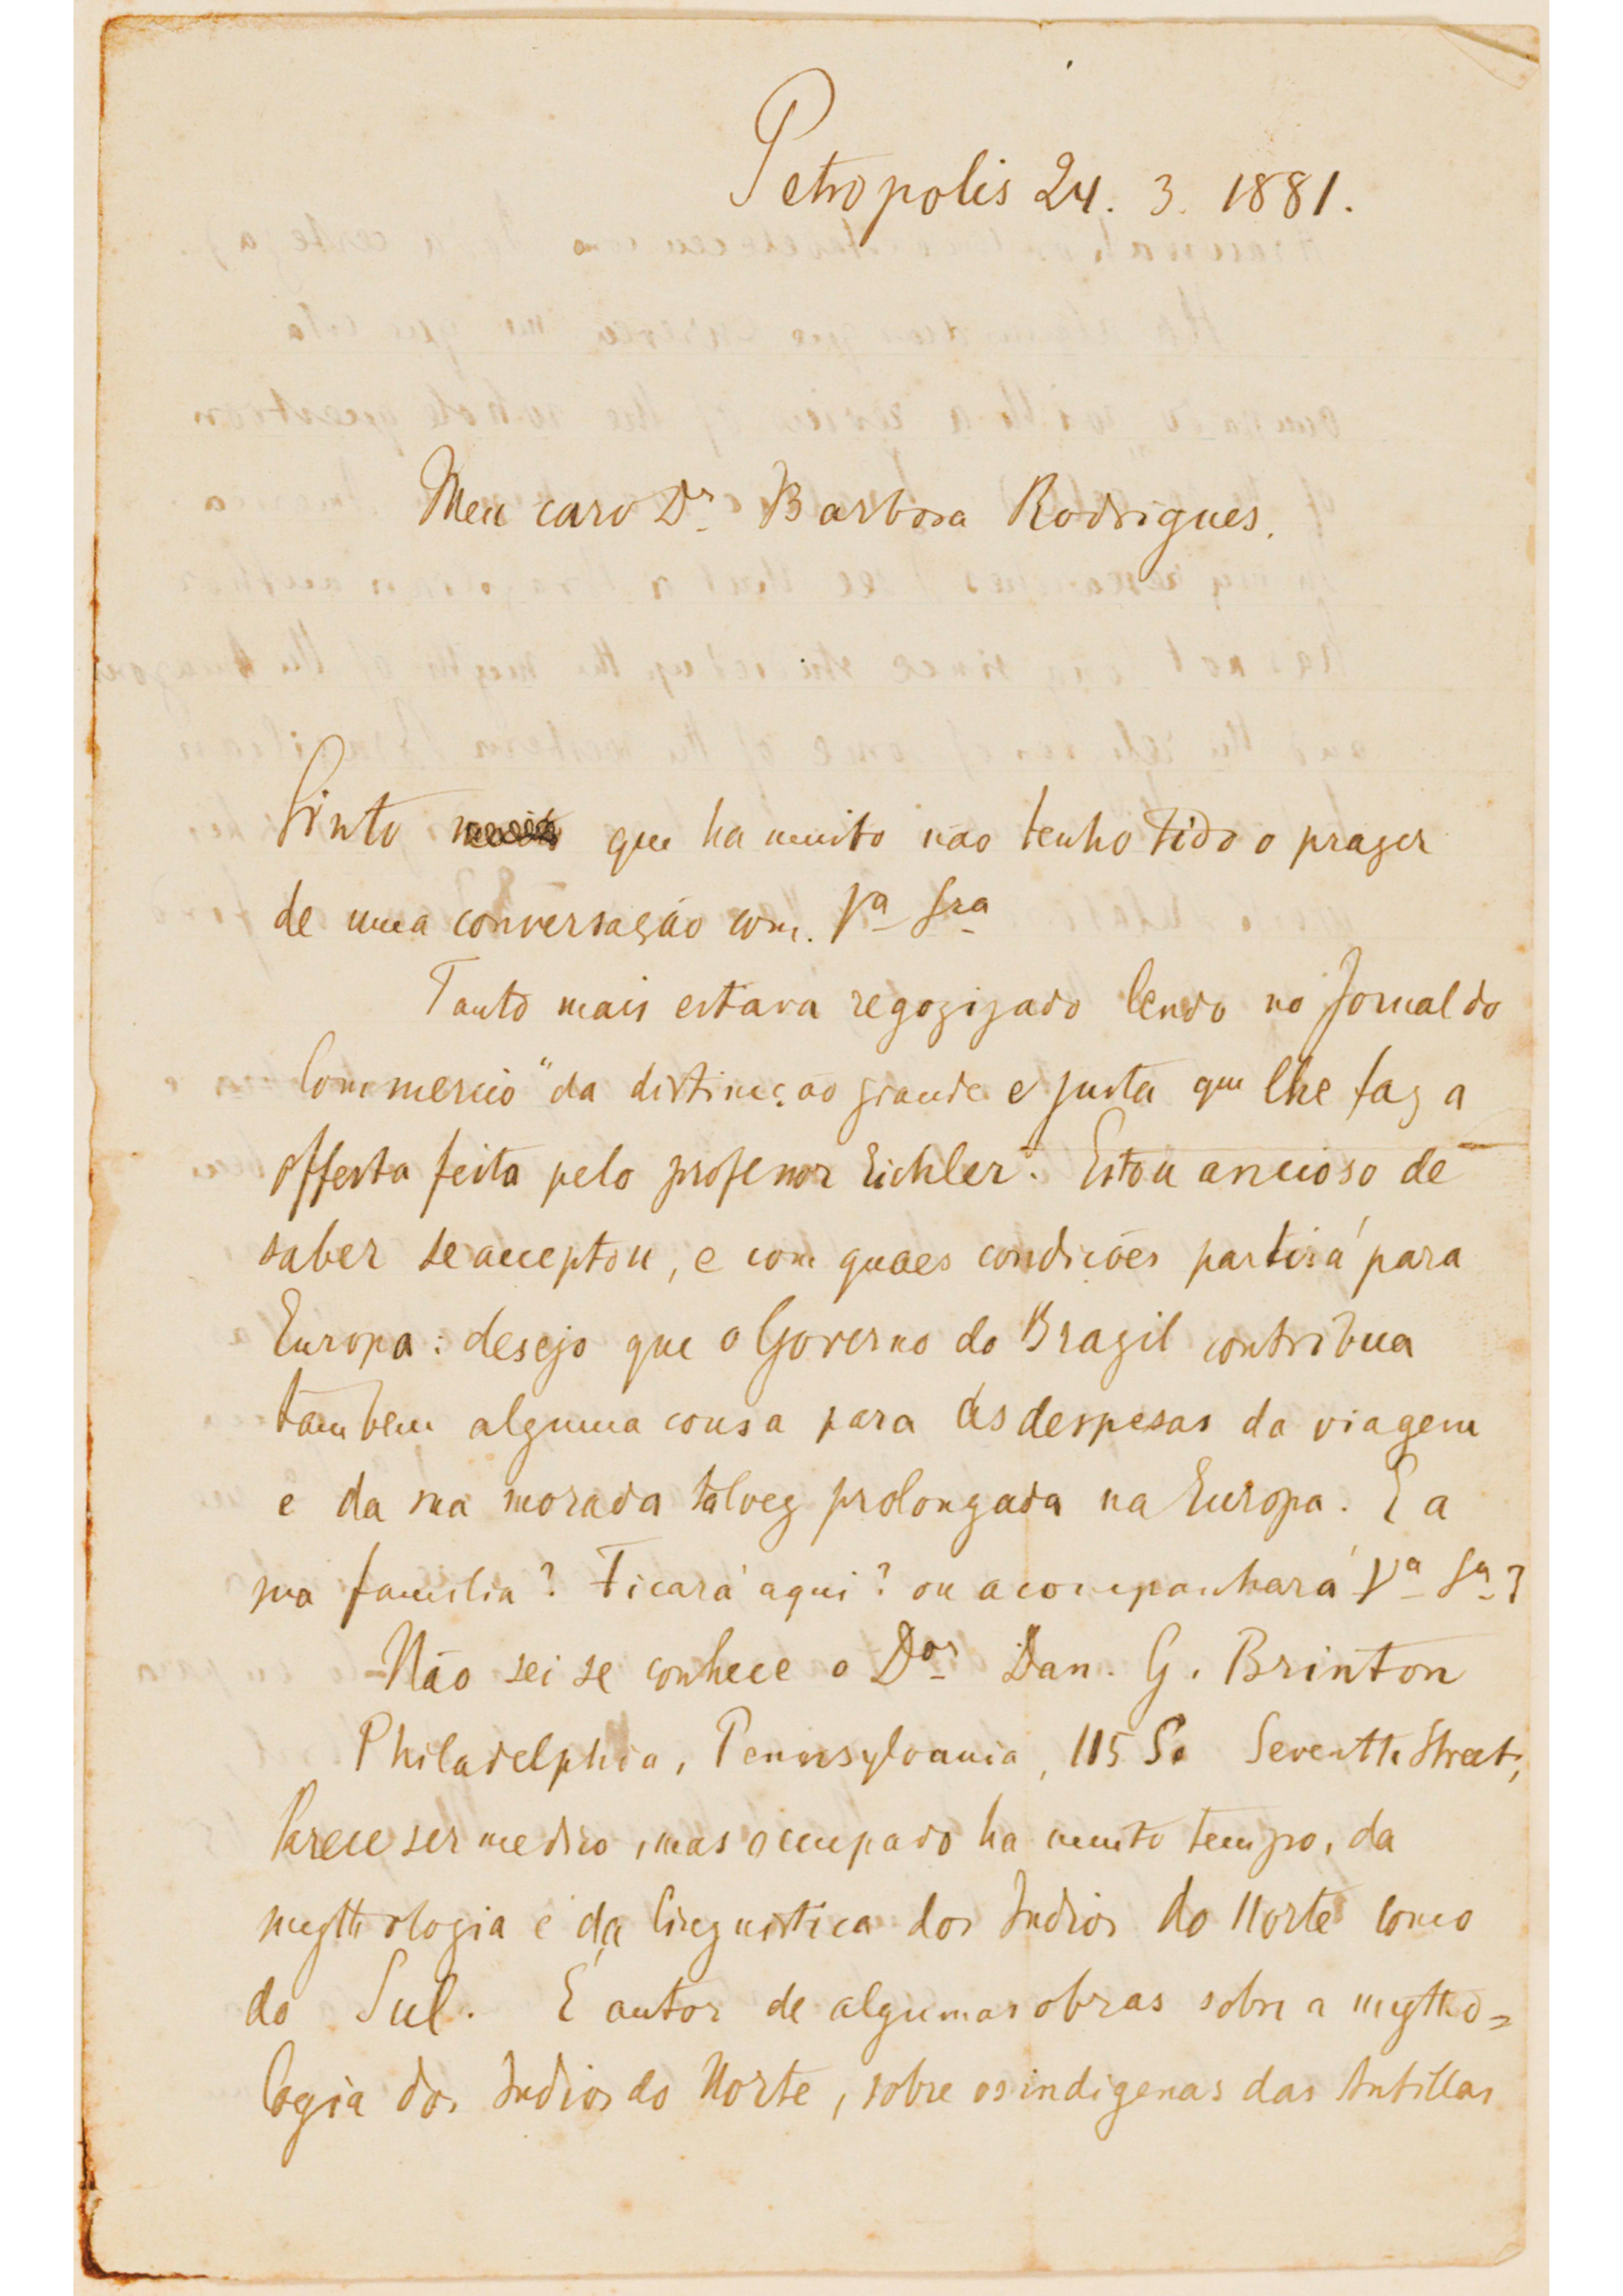 Petropolis 24. 3. 1881.
Meu caro Dr Barbosa Rodrigues.
Sinto que ha muito não tenho tido o prazer
de uma conversação com. Va Sra
Tanto mais estava regozizado lendo no Jornal do
Commercio" da distincção grande e justa que lhe faz a
offerta feita pelo professor Eichler. Estou ancioso de
saber se acceptou, e com quaes condicões partirá para
Europa: desejo que o Governo do Brazil contribua
tambem alguma cousa para as despesas da viagem
e da sua morada talvez prolongada na Europa. E a
sua familia? Ficará aqui? ou acompanhará Va Sa?
Não sei se conhece o Dor Dan. G. Brinton
Philadelphia, Pennsylvania, 115 So Seventh Street,
Parece ser medico, mas occupado ha muito tempo, da
mythologia e da linguistica dos Indios do Norte como
do Sul. E autor de algumas obras sobre a mytho=
logia dos Indios do Norte, sobre os indigenas das Antillas